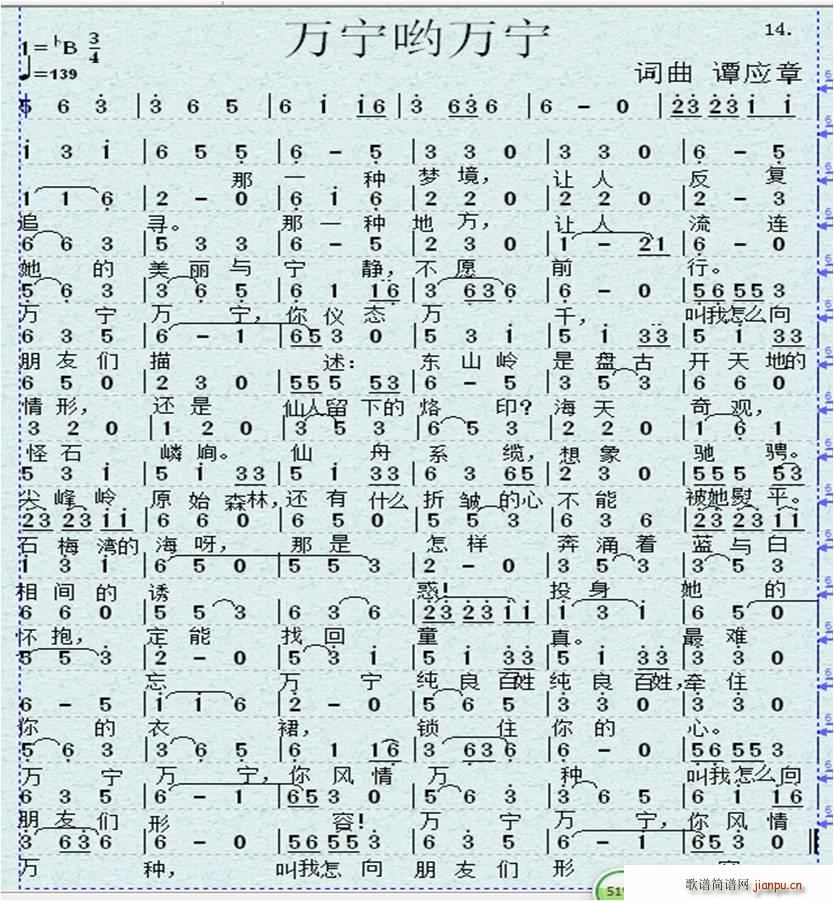 万宁哟万宁
14.
1=♭B 3/4
♩=139
词曲 谭应章
5 6 3 | 3 6 5 | 6 i i6 | 3 636 | 6 - 0 | 2323 i i
i 3 i | 6 5 5 | 6 - 5 | 3 3 0 | 3 3 0 | 6 - 5
那 一 种 梦 境， 让 人 反 复
1 1 6 | 2 - 0 | 6 i 6 | 2 2 0 | 2 2 0 | 2 - 3
追 寻。 那 一 种 地 方， 让 人 流 连
6 6 3 | 5 3 3 | 6 - 5 | 2 3 0 | 1 - 21 | 6 - 0
她 的 美 丽 与 宁 静， 不 愿 前 行。
5 6 3 | 3 6 5 | 6 1 i6 | 3 636 | 6 - 0 | 56 55 3
万 宁 万 宁， 你 仪 态 万 千， 叫我怎么向
6 3 5 | 6 - 1 | 65 3 0 | 5 3 i | 5 i 33 | 5 i 33
朋 友 们 描 述： 东 山 岭 是 盘 古 开 天 地的
6 5 0 | 2 3 0 | 55 5 53 | 6 - 5 | 3 5 3 | 6 6 0
情 形， 还 是 仙人留 下的 烙 印？ 海 天 奇 观，
3 2 0 | 1 2 0 | 3 5 3 | 6 5 3 | 2 2 0 | 1 6 1
怪 石 嶙 峋。 仙 舟 系 缆， 想 象 驰 骋。
5 3 i | 5 i 33 | 5 i 33 | 6 3 65 | 2 3 0 | 55 5 53
尖 峰 岭 原 始 森林， 还 有 什么 折 皱 的心 不 能 被她熨 平。
23 23 i i | 6 6 0 | 6 5 0 | 5 5 3 | 6 3 6 | 23 23 i i
石 梅 湾的 海 呀， 那 是 怎 样 奔 涌 着 蓝 与 白
i 3 i | 6 5 0 | 5 5 3 | 2 - 0 | 3 5 3 | 3 5 3
相 间 的 诱 惑！ 投 身 她 的
6 6 0 | 5 5 3 | 6 3 6 | 23 23 i i | i 3 i | 6 5 0
怀 抱， 定 能 找 回 童 真。 最 难
5 5 3 | 2 - 0 | 5 3 i | 5 i 33 | 5 i 33 | 3 3 0
忘 万 宁 纯 良 百姓 纯 良 百姓， 牵 住
6 - 5 | i i 6 | 2 - 0 | 5 6 5 | 3 3 0 | 3 3 0
你 的 衣 裙， 锁 住 你 的 心。
5 6 3 | 3 6 5 | 6 1 i6 | 3 636 | 6 - 0 | 56 55 3
万 宁 万 宁， 你 风 情 万 种 叫我怎么向
6 3 5 | 6 - 1 | 65 3 0 | 5 6 3 | 3 6 5 | 6 i i6
朋 友 们 形 容！ 万 宁 万 宁， 你 风 情
3 636 | 6 - 0 | 56 55 3 | 6 3 5 | 6 - 1 | 65 3 0
万 种， 叫我怎 向 朋 友 们 形
歌谱简谱网 jianpu.cn